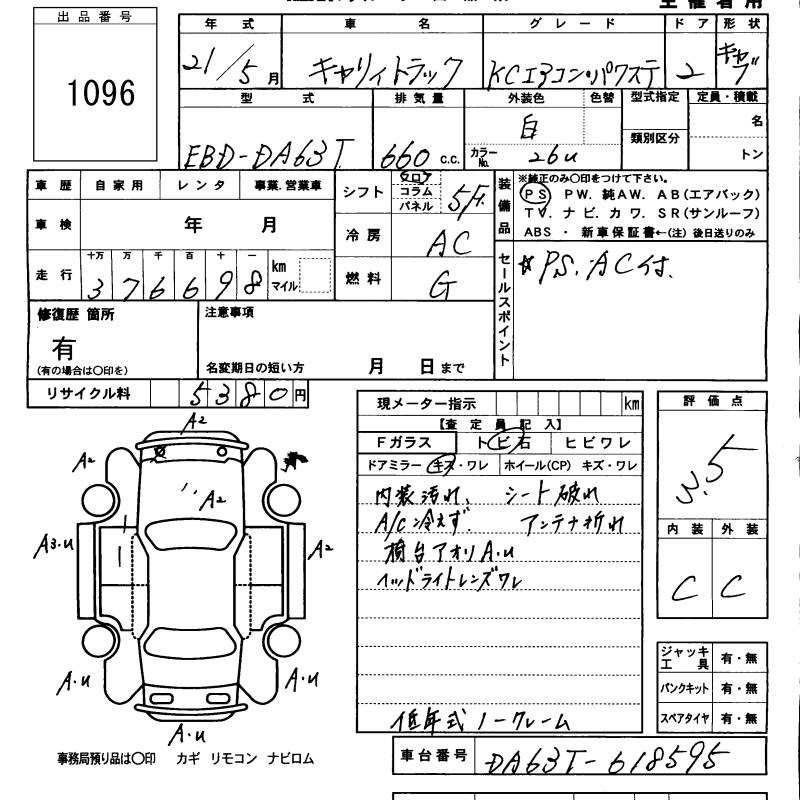 出品番号
1096
年式 車名 グレード ドア 形状
21/5月 キャリィトラック KCエアコン・パワステ 2 キャブ
型式 排気量 外装色 色替 型式指定 定員・積載
EBD-DA63T 660 c.c. 白 名
カラーNo. 26U 類別区分 トン
車歴 自家用 レンタ 事業.営業車
車検 年 月
走行 十万 万 千 百 十 一
3 7 6 6 9 8 km マイル
シフト フロア コラム パネル 5F.
冷房 AC
燃料 G
装備品
※純正のみ○印をつけて下さい。
PS PW. 純AW. AB(エアバック)
TV. ナビ. カワ. SR(サンルーフ)
ABS ・ 新車保証書←(注)後日送りのみ
セールスポイント
☆PS. AC付.
修復歴 箇所
有
(有の場合は○印を)
注意事項
名変期日の短い方 月 日まで
リサイクル料 5380円
A2
A2
A2
A3.U
A2
A.U
A.U
A.U
事務局預り品は○印 カギ リモコン ナビロム
現メーター指示 km
【査定員記入】
Fガラス トビ石 ヒビワレ
ドアミラー キズ・ワレ ホイール(CP) キズ・ワレ
内装汚れ、 シート破れ
A/C冷えず. アンテナ折れ
荷台アオリ A.U
ヘッドライトレンズワレ
低年式ノークレーム
評価点
3.5
内装 外装
C C
ジャッキ工具 有・無
パンクキット 有・無
スペアタイヤ 有・無
車台番号 DA63T-618595